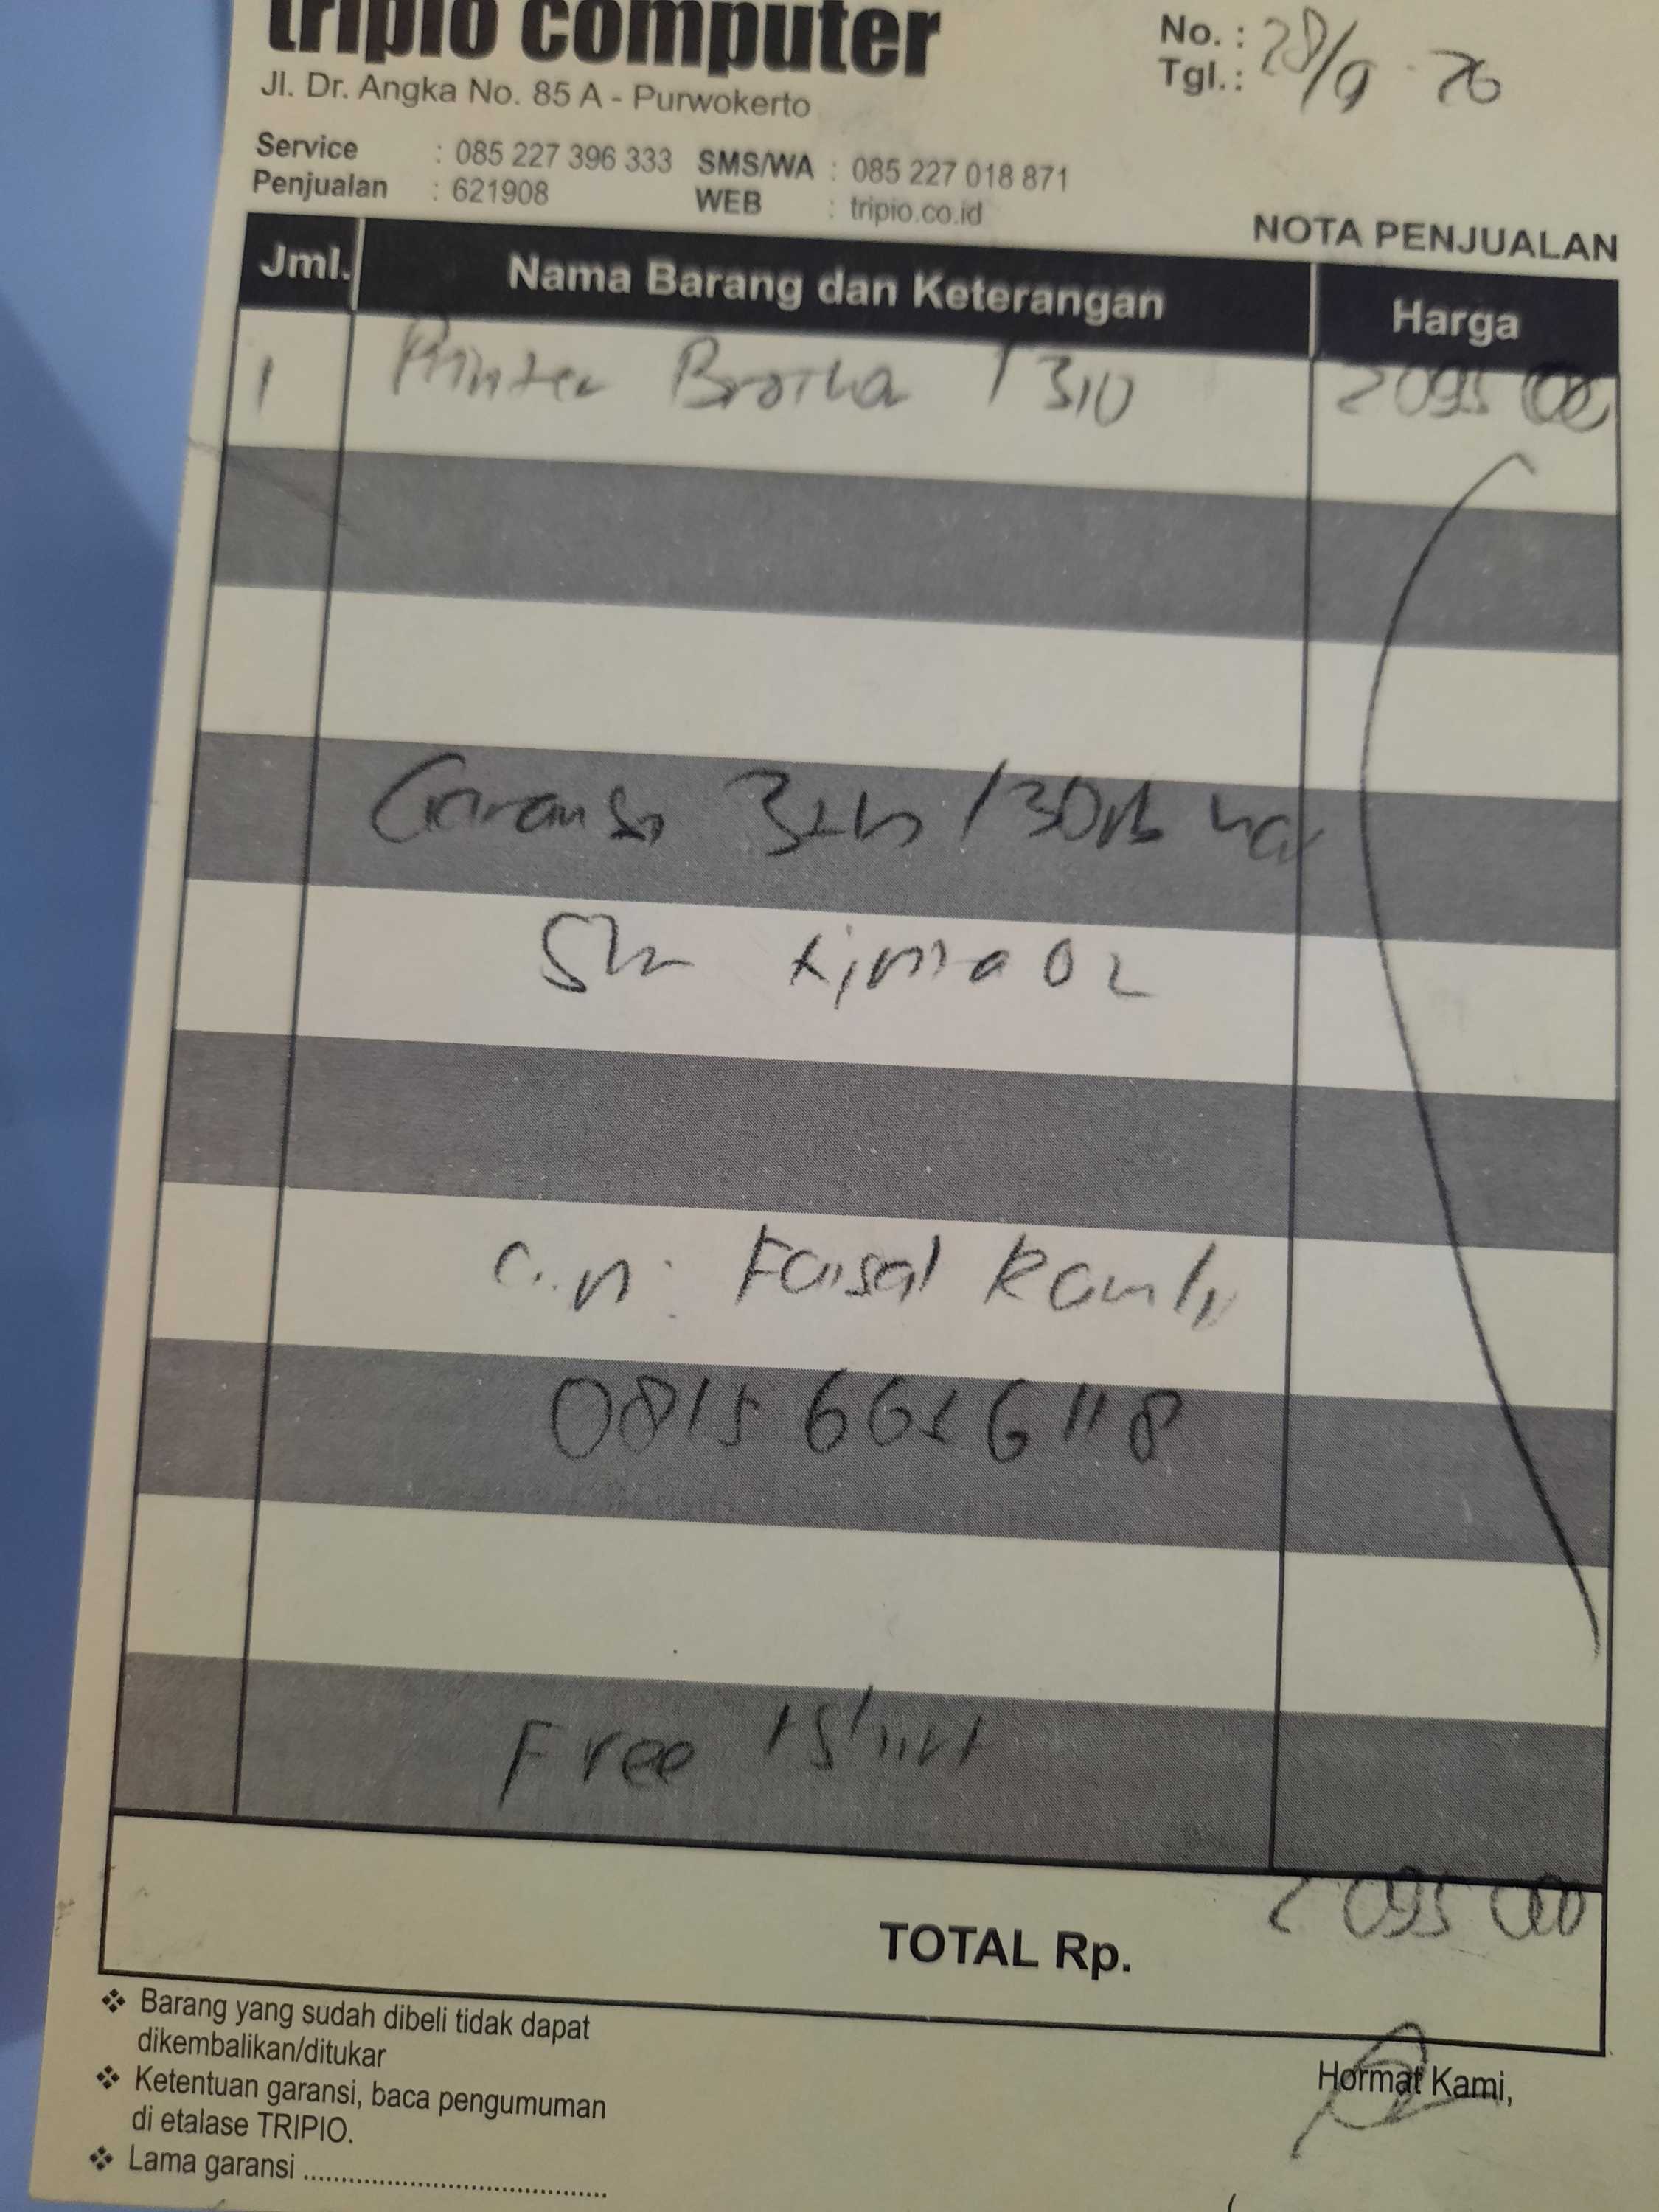 tripio computer
No. :
Jl. Dr. Angka No. 85 A - Purwokerto
Tgl. : 28/9
Service : 085 227 396 333 SMS/WA : 085 227 018 871
Penjualan : 621908 WEB : tripio.co.id
NOTA PENJUALAN
Jml. Nama Barang dan Keterangan Harga
1 Printer Brother T310 2095 000
Garansi 3th / 30rb
SMS Kirim a 02
a.n: Faisal Ramli
0815 6656 118
Free tshirt
TOTAL Rp. 2 095 000
❖ Barang yang sudah dibeli tidak dapat
dikembalikan/ditukar
❖ Ketentuan garansi, baca pengumuman
di etalase TRIPIO.
❖ Lama garansi ........................................
Hormat Kami,